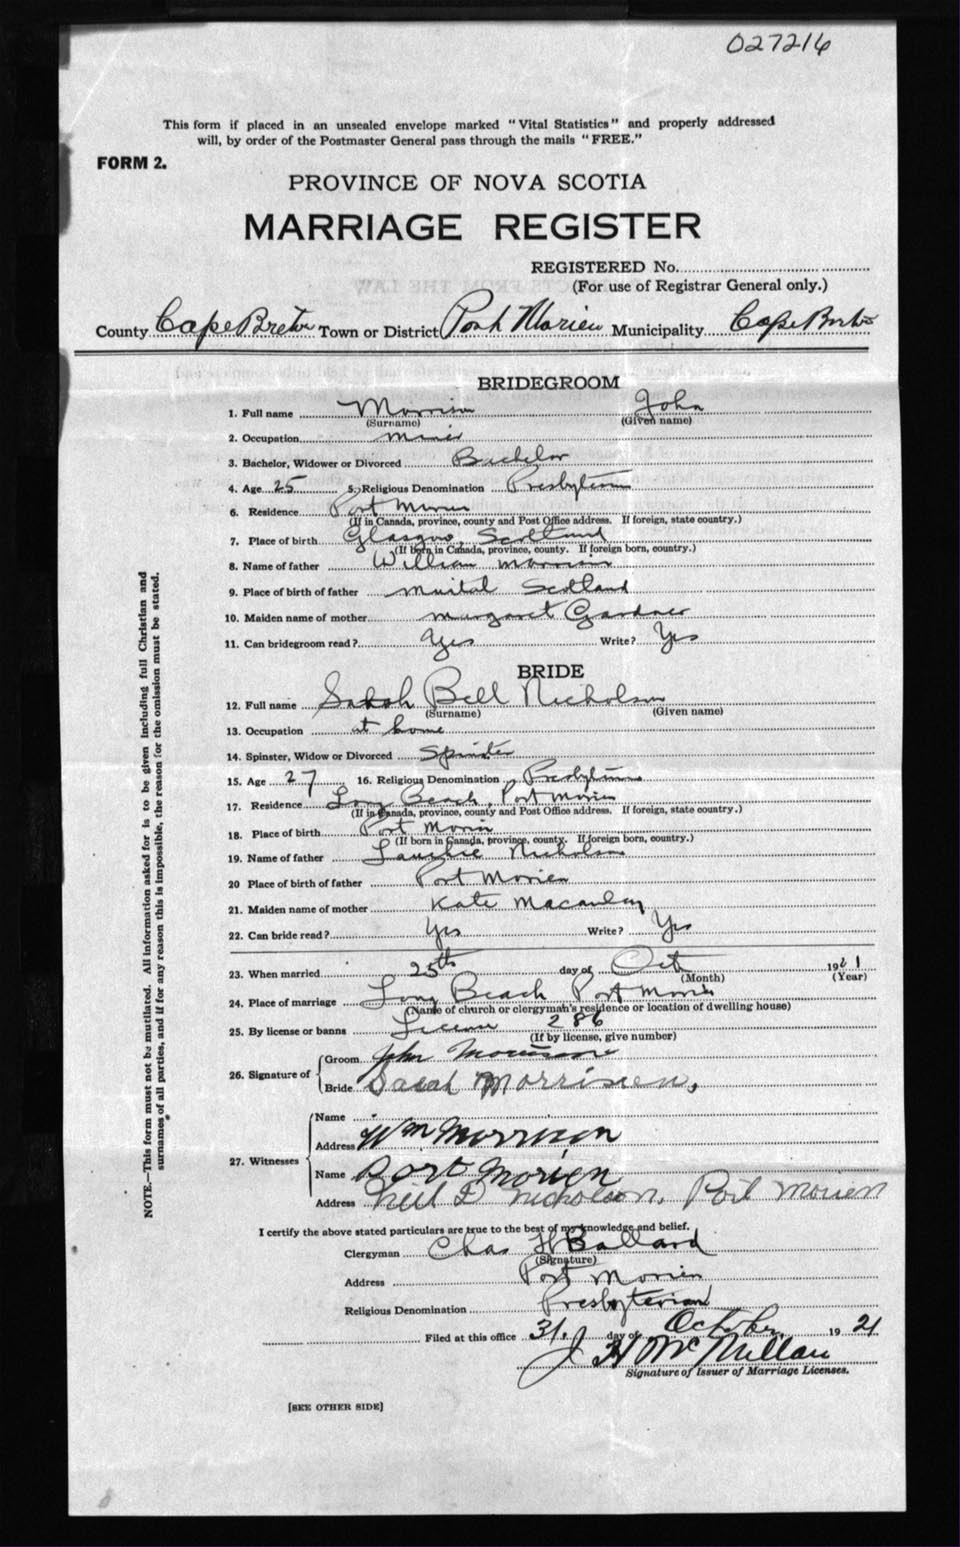 027216
This form if placed in an unsealed envelope marked "Vital Statistics" and properly addressed
will, by order of the Postmaster General pass through the mails "FREE."
FORM 2.
PROVINCE OF NOVA SCOTIA
MARRIAGE REGISTER
REGISTERED No.
(For use of Registrar General only.)
County Cape Breton Town or District Port Morien Municipality Cape Breton
BRIDEGROOM
1. Full name Morrison John
(Surname) (Given name)
2. Occupation miner
3. Bachelor, Widower or Divorced Bachelor
4. Age 25 5. Religious Denomination Presbyterian
6. Residence Port Morien
(If in Canada, province, county and Post Office address. If foreign, state country.)
7. Place of birth Glasgow, Scotland
(If born in Canada, province, county. If foreign born, country.)
8. Name of father William Morrison
9. Place of birth of father Scotland
10. Maiden name of mother Margaret Gardner
11. Can bridegroom read? Yes Write? Yes
BRIDE
12. Full name Sarah Bell Nicholson
(Surname) (Given name)
13. Occupation at home
14. Spinster, Widow or Divorced Spinster
15. Age 27 16. Religious Denomination Presbyterian
17. Residence Long Beach, Port Morien
(If in Canada, province, county and Post Office address. If foreign, state country.)
18. Place of birth Port Morien
(If born in Canada, province, county. If foreign born, country.)
19. Name of father Nicholson
20 Place of birth of father Port Morien
21. Maiden name of mother Kate Macaulay
22. Can bride read? Yes Write? Yes
23. When married 25th day of Oct 1921
(Month) (Year)
24. Place of marriage Long Beach Port Morien
(Name of church or clergyman's residence or location of dwelling house)
25. By license or banns License 286
(If by license, give number)
26. Signature of Groom John Morrison
Bride Sarah Morrison,
27. Witnesses
Name
Address Wm Morrison
Name Port Morien
Address Neil D Nicholson, Port Morien
I certify the above stated particulars are true to the best of my knowledge and belief.
Clergyman Chas H Ballard
(Signature)
Address Port Morien
Religious Denomination Presbyterian
Filed at this office 31. day of October 1921
J H McMillan
Signature of Issuer of Marriage Licenses.
[SEE OTHER SIDE]
NOTE.—This form must not be mutilated. All information asked for is to be given including full Christian and
surnames of all parties, and if for any reason this is impossible, the reason for the omission must be stated.